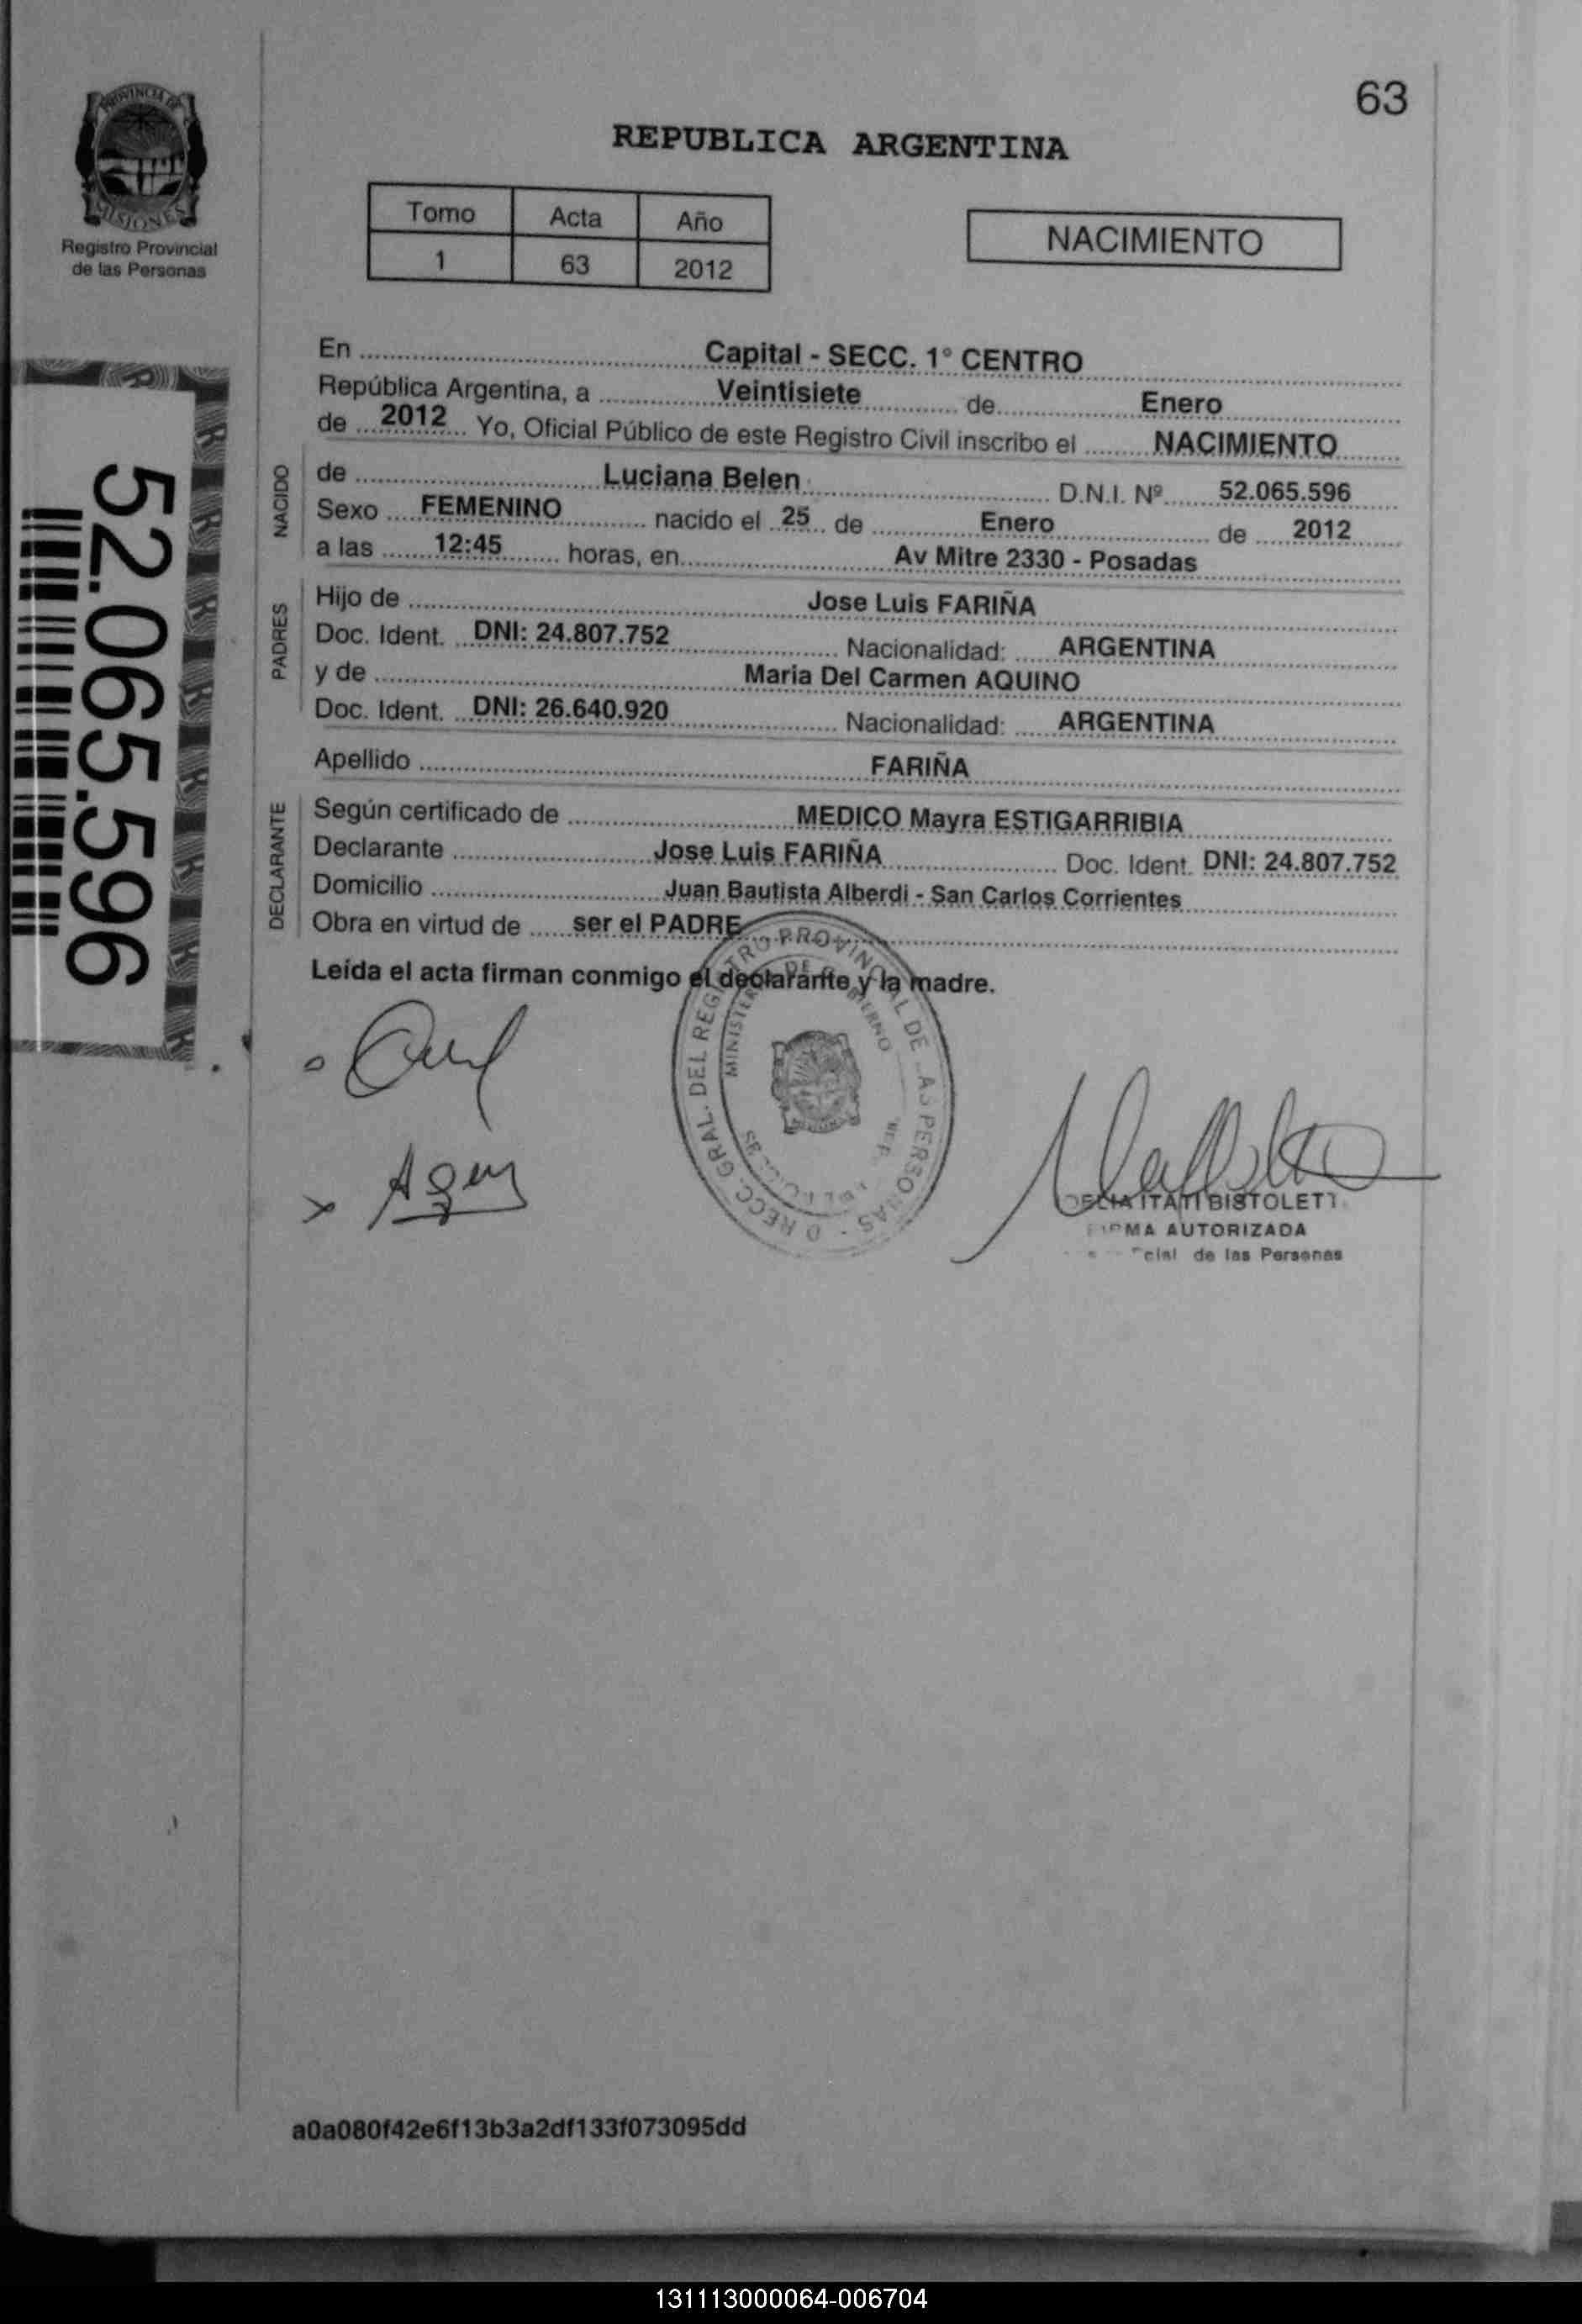 63
PROVINCIA DE
MISIONES
Registro Provincial
de las Personas
REPUBLICA ARGENTINA
Tomo Acta Año
1 63 2012
NACIMIENTO
52.065.596
En Capital - SECC. 1° CENTRO
República Argentina, a Veintisiete de Enero
de 2012 Yo, Oficial Público de este Registro Civil inscribo el NACIMIENTO
NACIDO
de Luciana Belen D.N.I. Nº 52.065.596
Sexo FEMENINO nacido el 25 de Enero de 2012
a las 12:45 horas, en Av Mitre 2330 - Posadas
PADRES
Hijo de Jose Luis FARIÑA
Doc. Ident. DNI: 24.807.752 Nacionalidad: ARGENTINA
y de Maria Del Carmen AQUINO
Doc. Ident. DNI: 26.640.920 Nacionalidad: ARGENTINA
Apellido FARIÑA
DECLARANTE
Según certificado de MEDICO Mayra ESTIGARRIBIA
Declarante Jose Luis FARIÑA Doc. Ident. DNI: 24.807.752
Domicilio Juan Bautista Alberdi - San Carlos Corrientes
Obra en virtud de ser el PADRE
Leída el acta firman conmigo el declarante y la madre.
GRAL. DEL REGISTRO PROVINCIAL DE PERSONAS
ITATI BISTOLETTI
AUTORIZADA
de las Personas
a0a080f42e6f13b3a2df133f073095dd
131113000064-006704